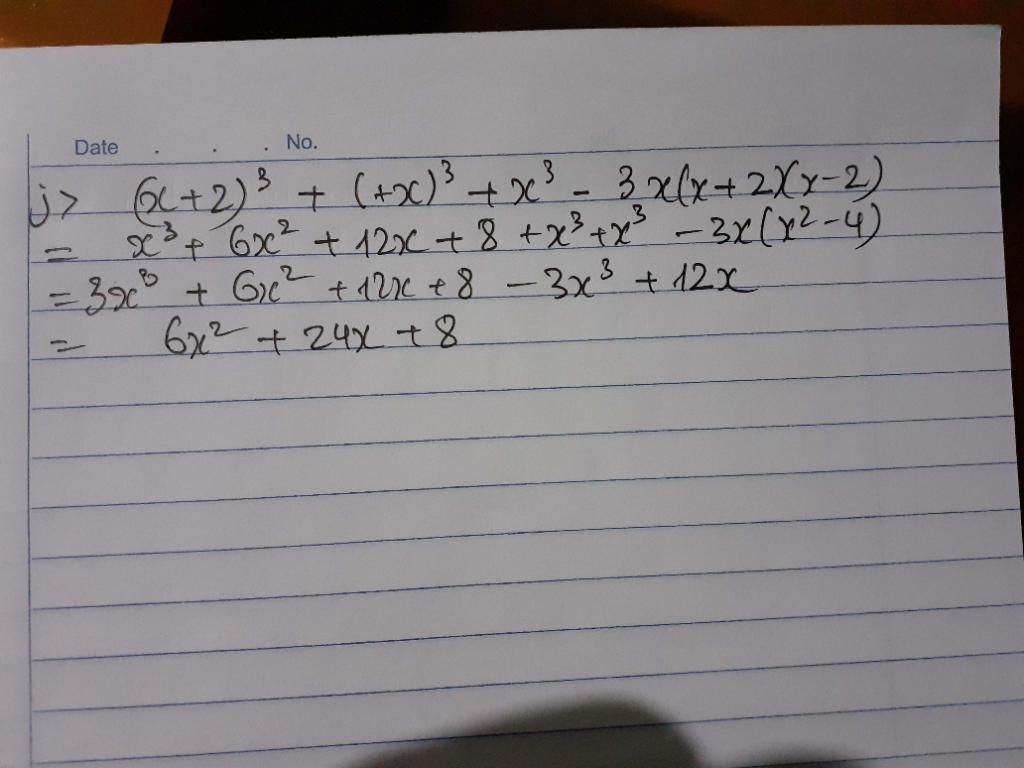 Date . . . No.
j> (x+2)³ + (+x)³ + x³ - 3x(x+2)(x-2)
= x³ + 6x² + 12x + 8 + x³ + x³ - 3x(x²-4)
= 3x³ + 6x² + 12x + 8 - 3x³ + 12x
= 6x² + 24x + 8